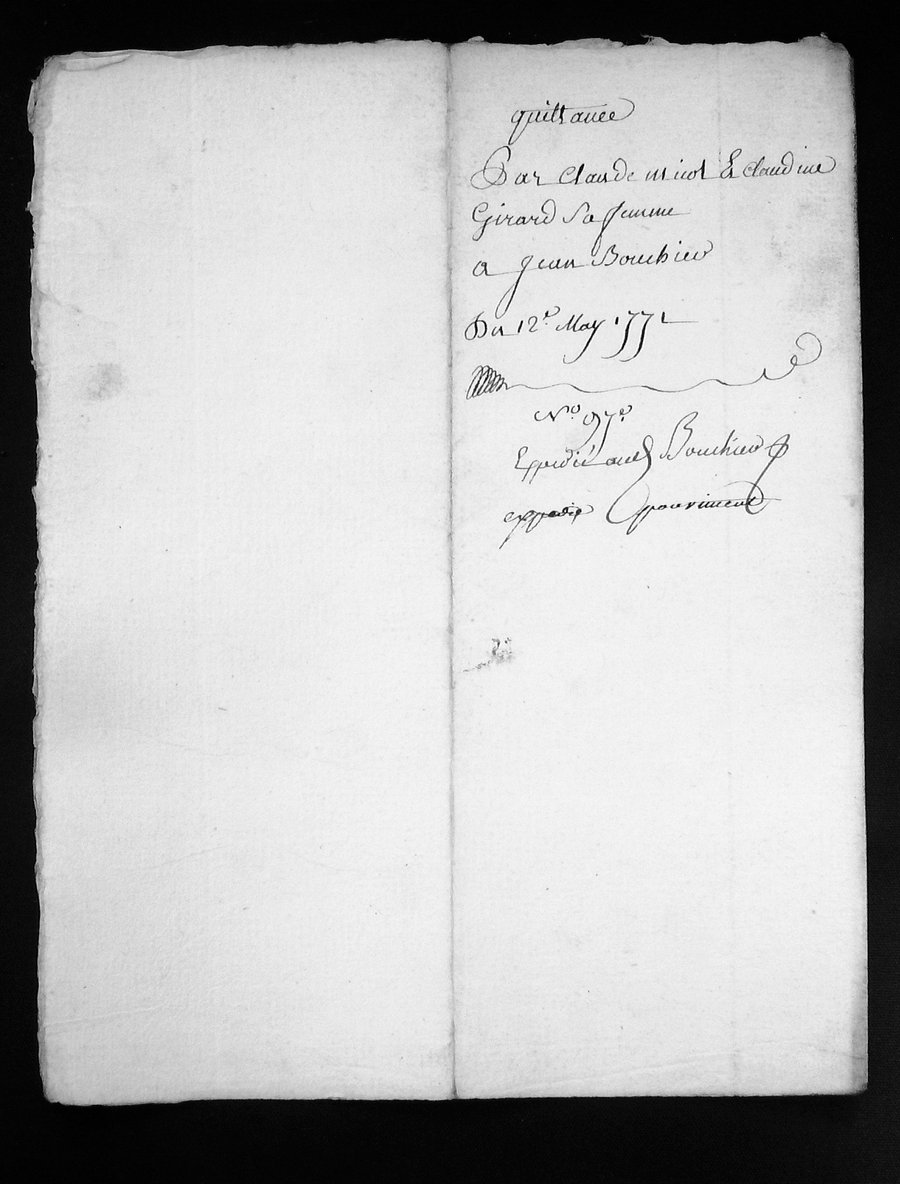 quittance
Par Claude nicol & Claudine
Girard Sa femme
a jean Bouchier
Du 12e May 1771
No. 97e
Expedié aud Bouchier
expedié